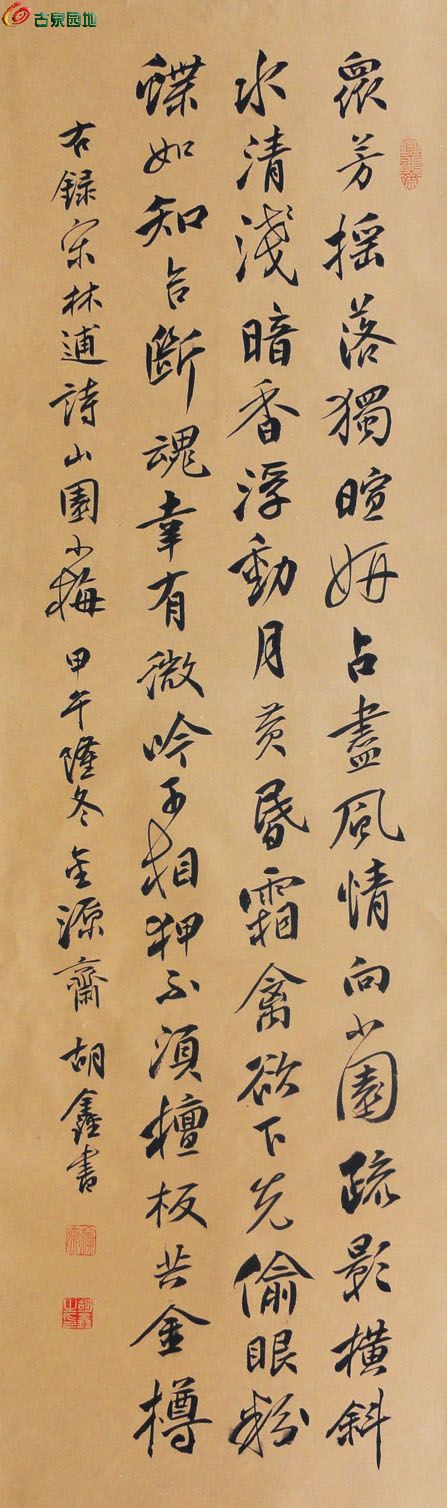 古泉园地
眾芳搖落獨暄妍占盡風情向小園疏影橫斜
水清淺暗香浮動月黃昏霜禽欲下先偷眼粉
蝶如知合斷魂幸有微吟可相狎不須檀板共金樽
右録宋林逋詩山園小梅甲午隆冬金源齋胡鑫書